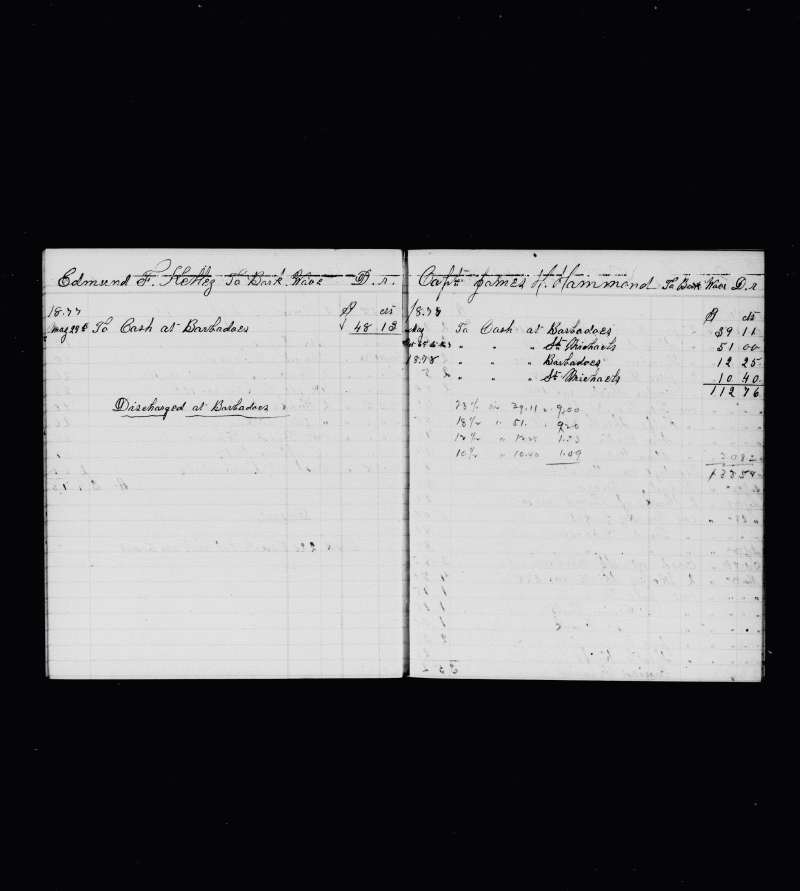 Edmund F. To Bark Wave D.r.
18.77 $ cts
May 28th To Cash at Barbadoes √ 48 13
Discharged at Barbadoes
Capt. James H. Hammond To Bark Wave D.r
18.78 $ cts
May To Cash at Barbadoes 39.11
" " " St. Michaels 51 00
18.78 " " " Barbadoes 12 25
" " " St. Michaels 10 40
112 76
23% on 39.11 " 9.00
18% " 51. " 9.20
12% " 12.25 1.53
10% " 10.40 1.09
20 82
133 58